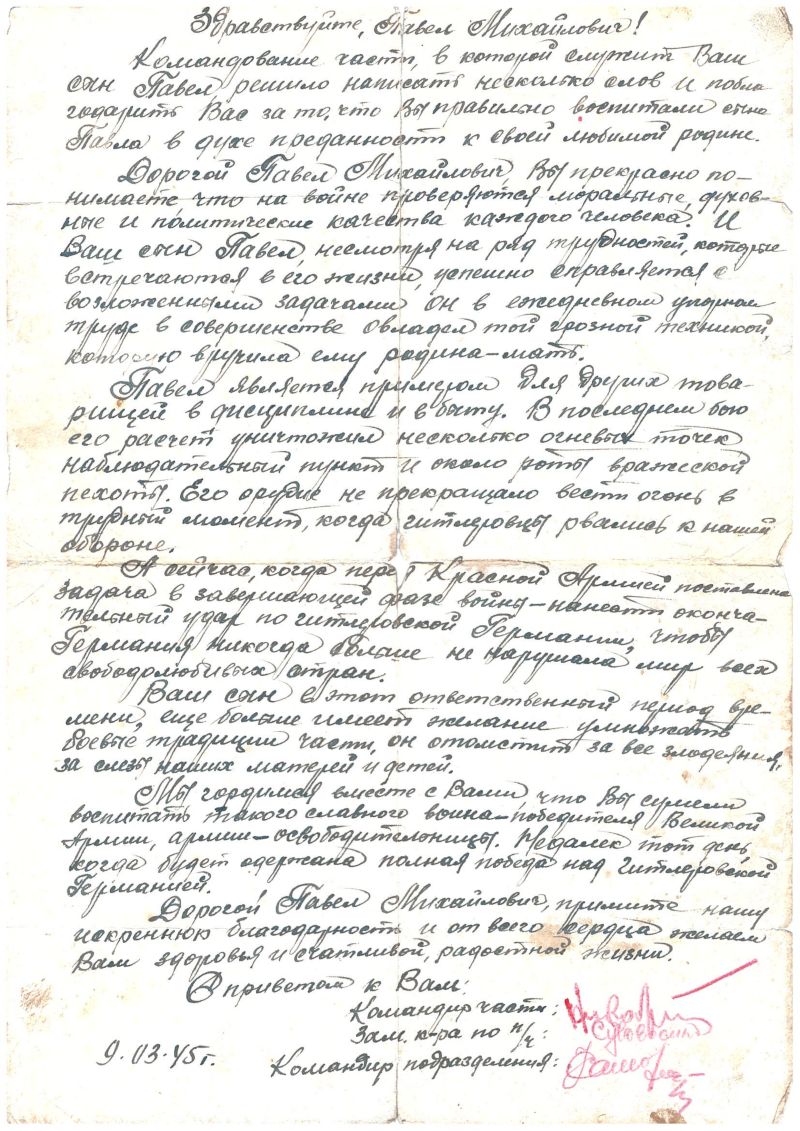 Здравствуйте, Павел Михайлович!
Командование части, в которой служит Ваш
сын Павел решило написать несколько слов и побла
годарить Вас за то, что Вы правильно воспитали сына
Павла в духе преданности к своей любимой родине.
Дорогой Павел Михайлович, Вы прекрасно по-
нимаете что на войне проверяются моральные, духов-
ные и политические качества каждого человека. И
Ваш сын Павел, несмотря на ряд трудностей, которые
встречаются в его жизни, успешно справляется с
возложенными задачами он в ежедневном упорном
труде в совершенстве овладел той грозной техникой,
которую вручила ему родина-мать.
Павел является примером для других това-
рищей в дисциплине и в быту. В последнем бою
его расчет уничтожил несколько огневых точек
наблюдательный пункт и около роты вражеской
пехоты. Его орудие не прекращало вести огонь в
трудный момент, когда гитлеровцы рвались к нашей
обороне.
А сейчас, когда перед Красной Армией поставлена
задача в завершающей фазе войны-нанести оконча-
тельный удар по гитлеровской Германии, чтобы
Германия никогда больше не нарушала мир всех
свободолюбивых стран.
Ваш сын в этот ответственный период вре-
мени, еще больше имеет желание умножать
боевые традиции части, он отомстит за все злодеяния,
за слезы наших матерей и детей.
Мы гордимся вместе с Вами, что Вы сумели
воспитать такого славного воина-победителя Великой
Армии, армии-освободительницы. Недалек тот день,
когда будет одержана полная победа над гитлеровской
Германией.
Дорогой Павел Михайлович, примите нашу
искреннюю благодарность и от всего сердца желаем
Вам здоровья и счатливой, радостной жизни.
С приветом к Вам:
Командир части:
Зам. к-ра по п/ч:
9.03.45г. Командир подразделения: